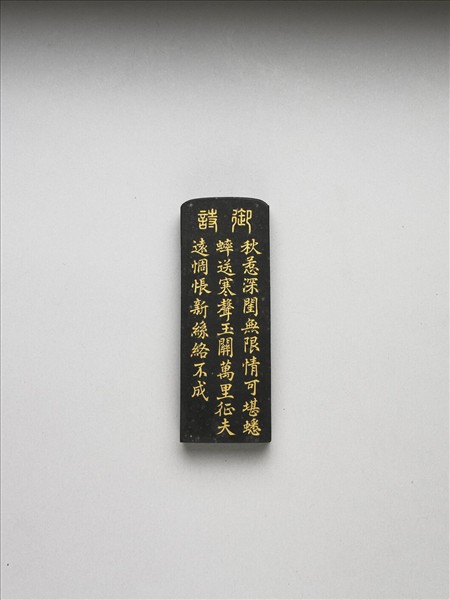 御詩
秋惹深閨無限情可堪蟋
蟀送寒聲玉關萬里征夫
遠惆悵新絲絡不成